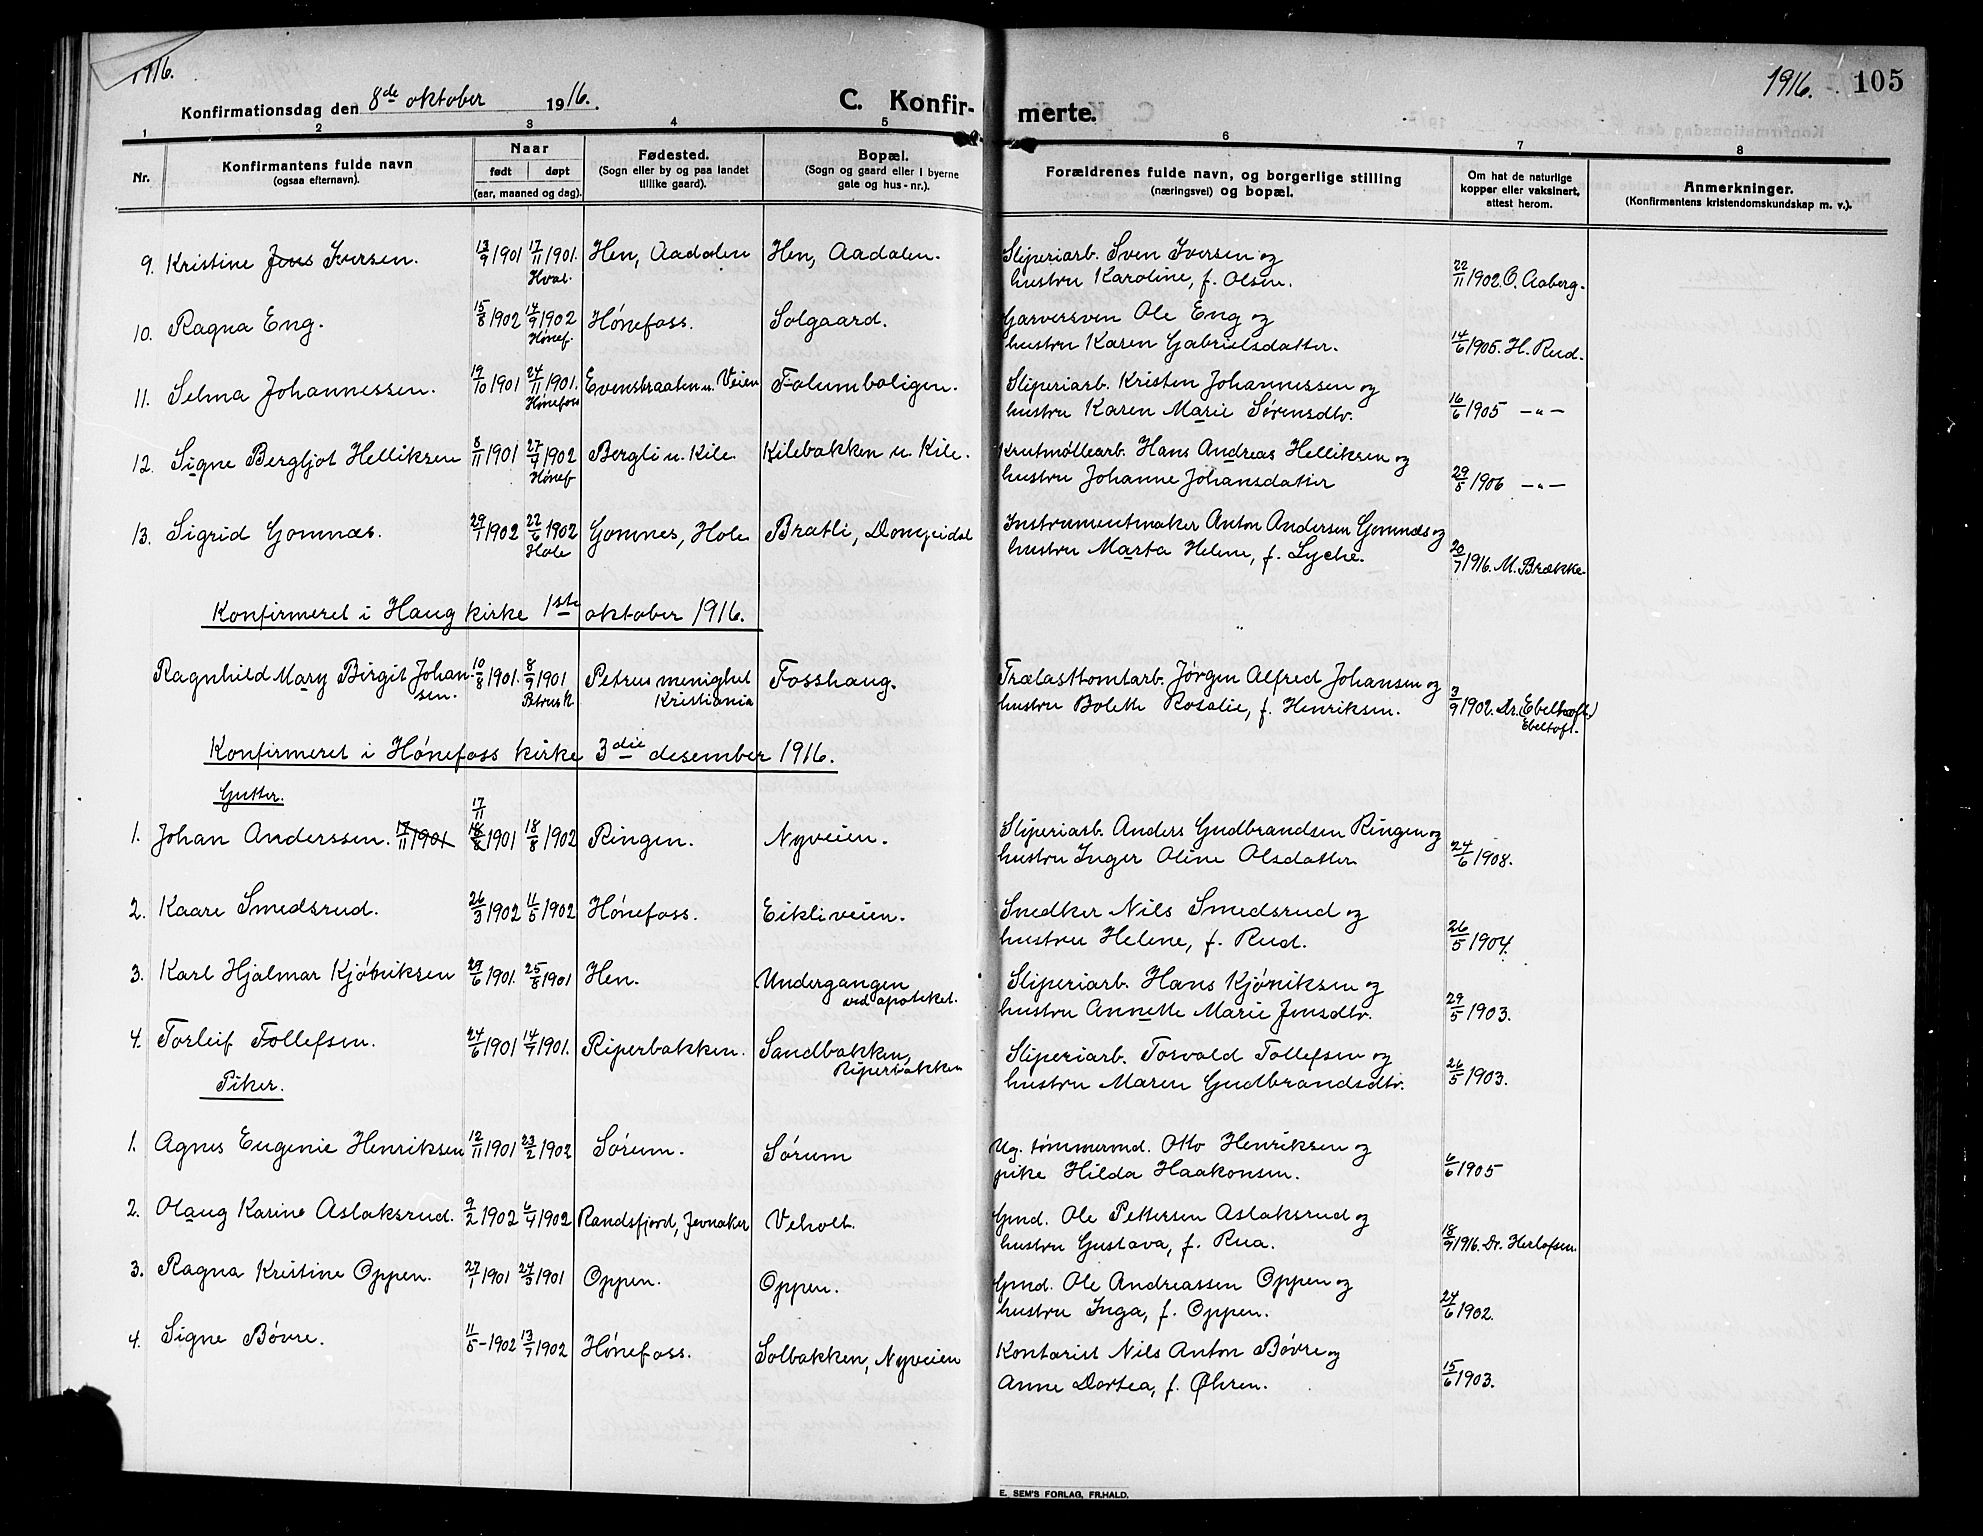 1916.
1916. 105
Konfirmationsdag den 8de oktober 1916.
C. Konfir- merte.
1 2 3 4 5 6 7 8
Nr.
Konfirmantens fulde navn
(ogsaa efternavn).
Naar
født døpt
(aar, maaned og dag).
Fødested.
(Sogn eller by og paa landet
tillike gaard).
Bopæl.
(Sogn og gaard eller i byerne
gate og hus-nr.).
Forældrenes fulde navn, og borgerlige stilling
(næringsvei) og bopæl.
Om hat de naturlige
kopper eller vaksinert,
attest herom.
Anmerkninger.
(Konfirmantens kristendomskundskap m. v.).
9. Kristine Jens Iversen. 13/9 1901 17/11 1901. Hval. Hen, Aadalen Hen, Aadalen. Sliperiarb. Sven Iversen og
hustru Karoline, f. Olsen. 22/11 1902. O. Aaberg.
10. Ragna Eng. 15/8 1902 14/9 1902 Hønef. Hønefoss. Solgaard. Garversven Ole Eng og
hustru Karen Gabrielsdatter. 14/6 1905. H. Rud.
11. Selma Johannessen. 19/10 1901 24/11 1901. Hønefoss Evensbraaten u. Veien Falumboligen. Sliperiarb. Kristen Johannessen og
hustru Karen Marie Sørensdtr. 16/6 1905 -"-
12. Signe Bergljot Helliksen 8/11 1901 27/4 1902 Hønef. Bergli u. Kile Kilebakken u. Kile. Krutmøllearb. Hans Andreas Helliksen og
hustru Johanne Johansdatter 29/5 1906 -"-
13. Sigrid Gomnæs. 29/1 1902 22/6 1902 Hole Gomnes, Hole Bratli, Instrumentmaker Anton Andersen Gomnæs og
hustru Marta Helene, f. Lyche. 20/7 1916. M. Brække.
Konfirmeret i Haug kirke 1ste oktober 1916.
Ragnhild Mary Birgit Johansen. 10/8 1901. 8/9 1901 Petrus k. Petrus menighet Kristiania Fosshaug. Trælasttomtarb. Jørgen Alfred Johansen og
hustru Bolette Rosalie, f. Henriksen. 3/9 1902. Dr. (Ebeltoft.)
Ebeltoft.
Konfirmeret i Hønefoss kirke 3die desember 1916.
Gutter.
1. Johan Anderssen. 17/11 1901 17/11 18/8 1901 18/8 1902 Ringen. Nyveien. Sliperiarb. Anders Gudbrandsen Ringen og
hustru Inger Oline Olsdatter 24/6 1908.
2. Kaare Smedsrud. 26/3 1902 11/5 1902 Hønefoss. Eikliveien. Snedker Nils Smedsrud og
hustru Helene, f. Rud. 26/5 1904.
3. Karl Hjalmar Kjøniksen 29/6 1901. 25/8 1901 Hen. Undergangen
ved apoteket. Sliperiarb. Hans Kjøniksen og
hustru Annette Marie Jensdtr. 29/5 1903.
4. Torleif Tollefsen. 24/6 1901 14/7 1901. Riperbakken. Sandbakken,
Riperbakken Sliperiarb. Torvald Tollefsen og
hustru Maren Gudbrandsdtr. 26/5 1903.
Piker.
1. Agnes Eugenie Henriksen 12/11 1901 23/2 1902 Sørum. Sørum Ug. tømmermd. Otto Henriksen og
pike Hilda Haakonsen. 6/6 1905
2. Olaug Karine Aslaksrud. 9/2 1902 6/4 1902 Randsfjord, Jevnaker Veholt. Gmd. Ole Pettersen Aslaksrud og
hustru Gustava, f. Rua. 18/9 1916. Dr. Herlofsen.
3. Ragna Kristine Oppen. 27/1 1901 24/3 1901 Oppen. Oppen. Gmd. Ole Andreassen Oppen og
hustru Inga, f. Oppen. 24/6 1902.
4. Signe Bøvre. 11/5-1902 13/7 1902 Hønefoss. Solbakken, Nyveien Kontorist Nils Anton Bøvre og
Anne Dortea, f. Øhren. 15/6 1903.
E. SEM'S FORLAG, FR.HALD.